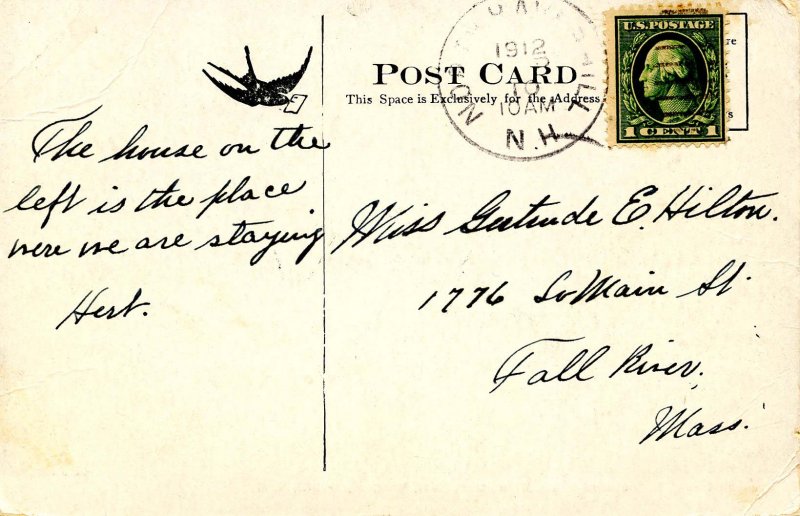 U.S. POSTAGE
1 CENT 1
1912
10
10 AM
N.H.
POST CARD
This Space is Exclusively for the Address.
The house on the
left is the place
were we are staying
Hert.
Miss Gertrude E. Hilton.
1776 So Main St.
Fall River,
Mass.